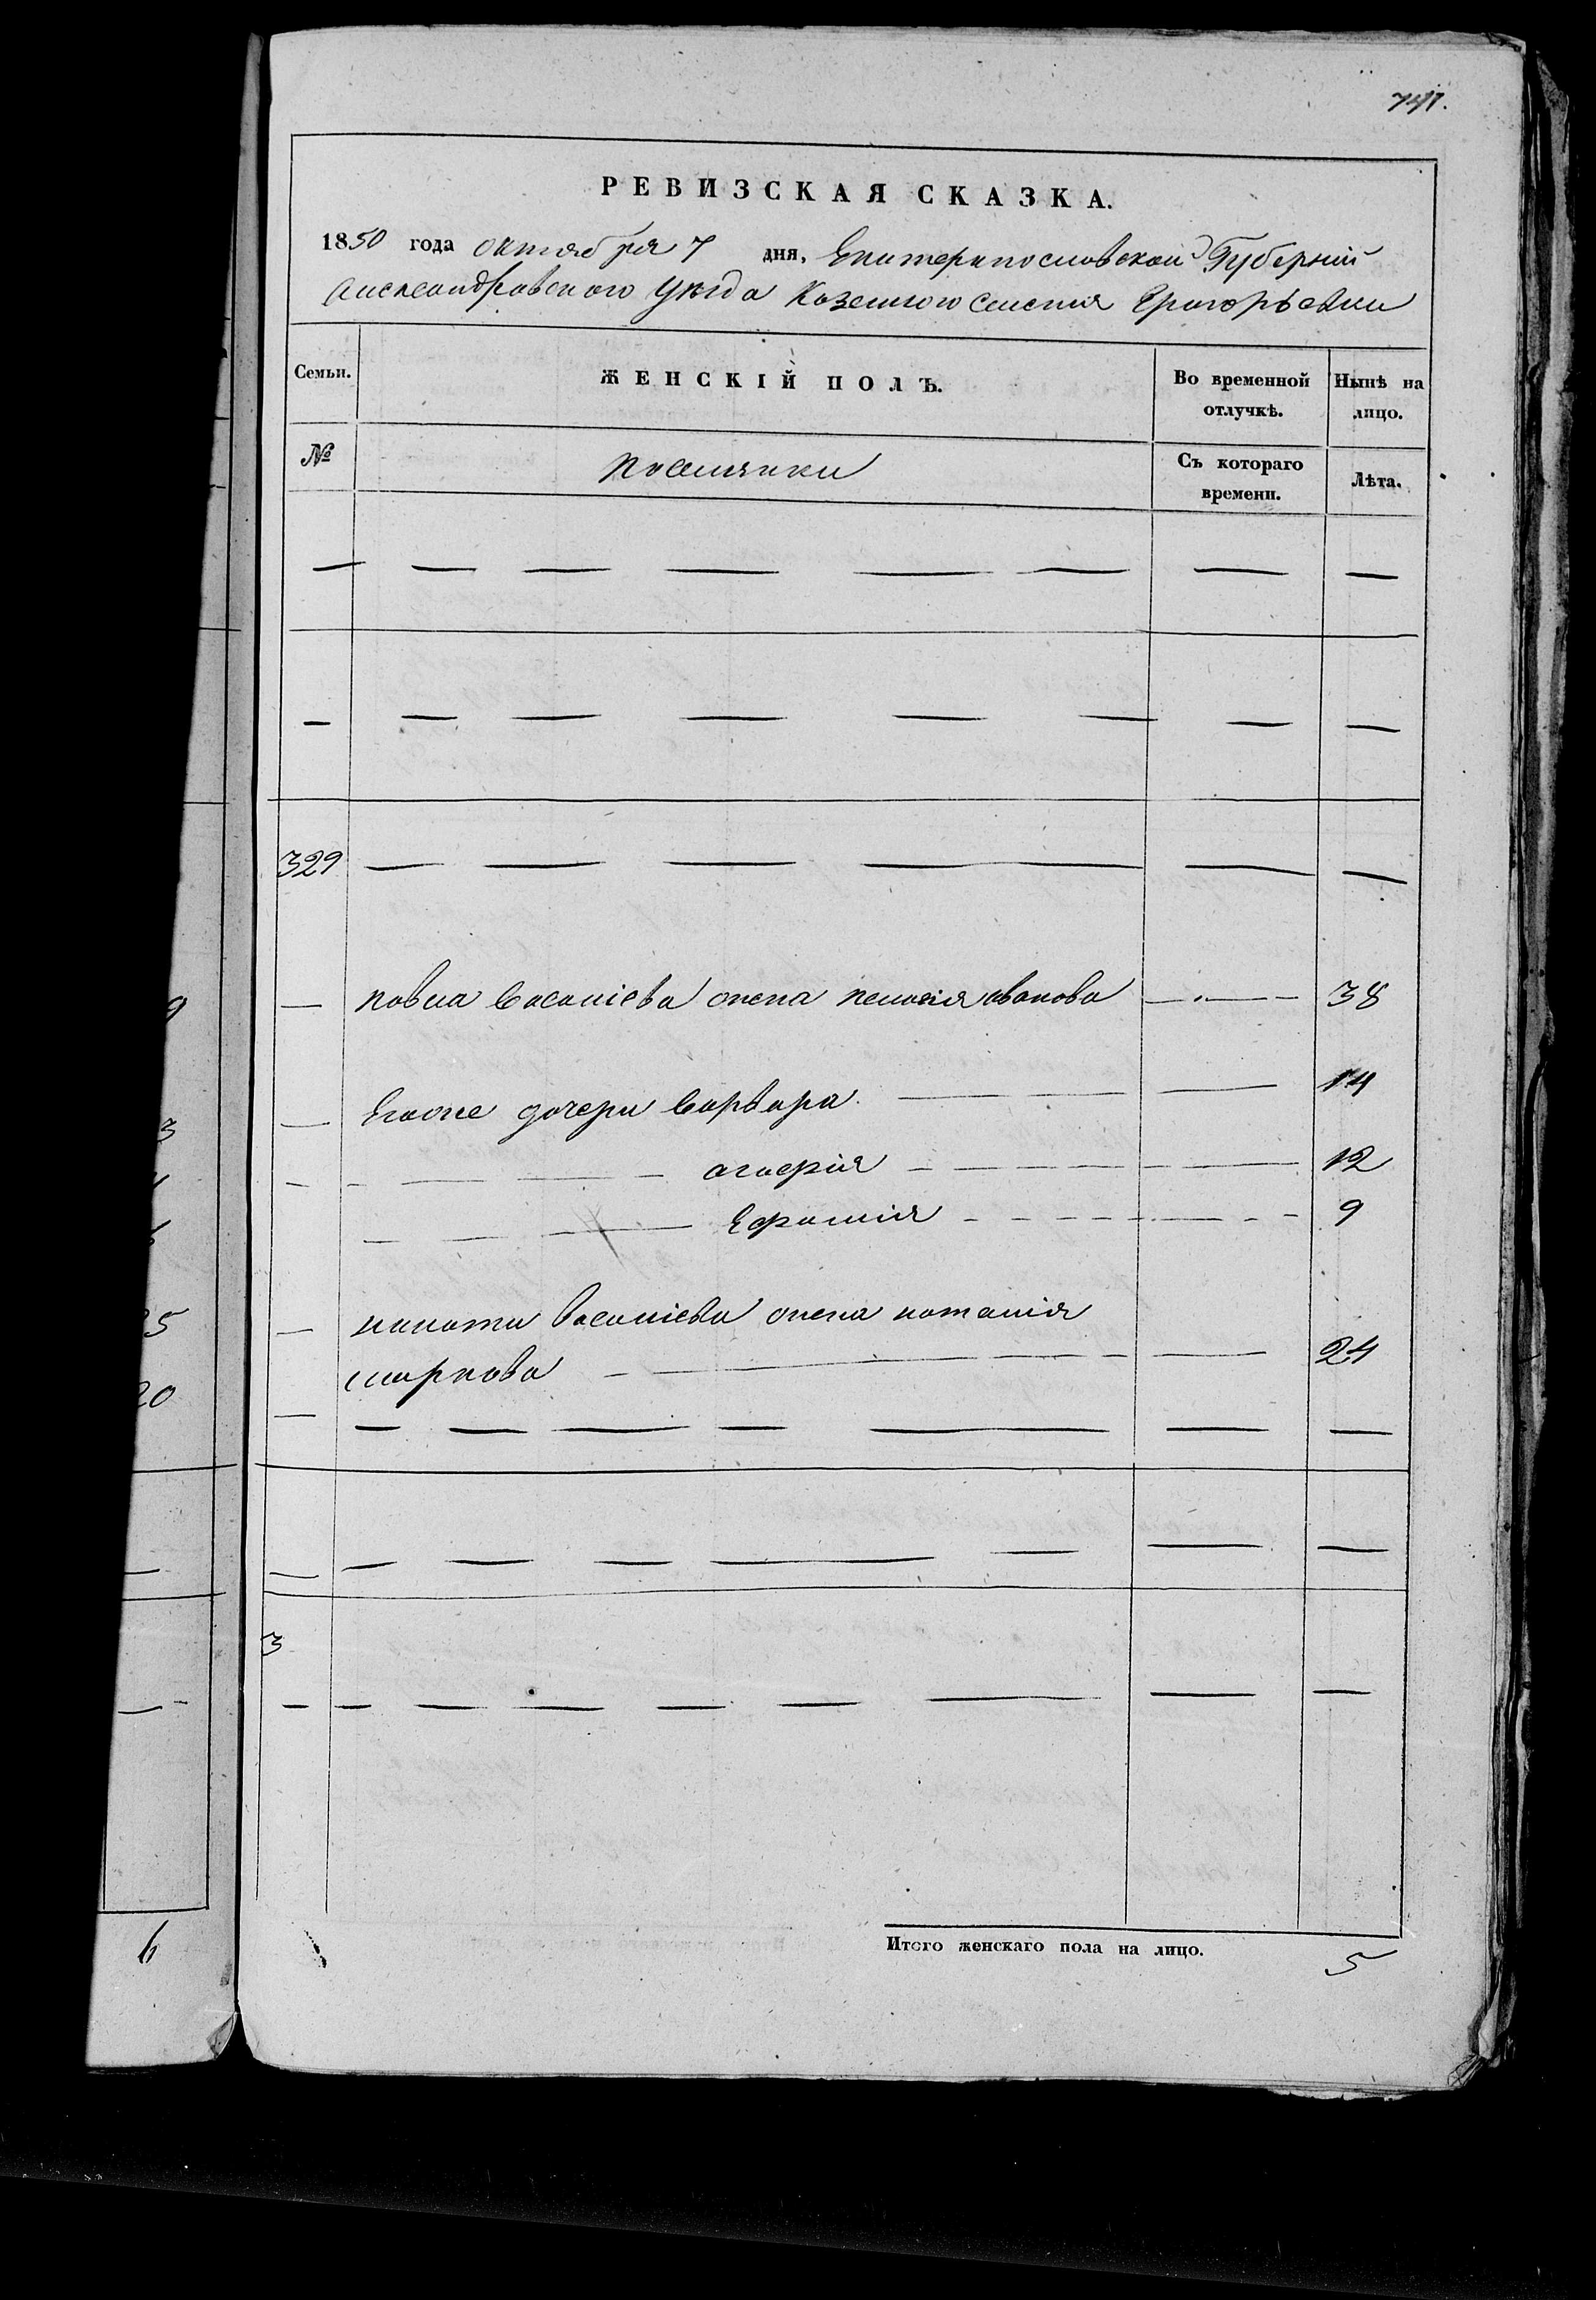 741.
РЕВИЗСКАЯ СКАЗКА.
1850 года октября 7 дня, Екатеринославской Губерніи
Александровского уезда Казенного Селенія Григорьевки
Семьи.
ЖЕНСКІЙ ПОЛЪ.
Во временной отлучкѣ.
Нынѣ на лицо.
№
Поселянки
Съ котораго времени.
Лѣта.
329
Павла Василіева жена Пелагія Иванова 38
Егоже дочери Варвара 14
Агафія 12
Ефимія 9
Василіева жена Наталія
Маркова 24
3
Итого женскаго пола на лицо. 5
9
3
5
20
6